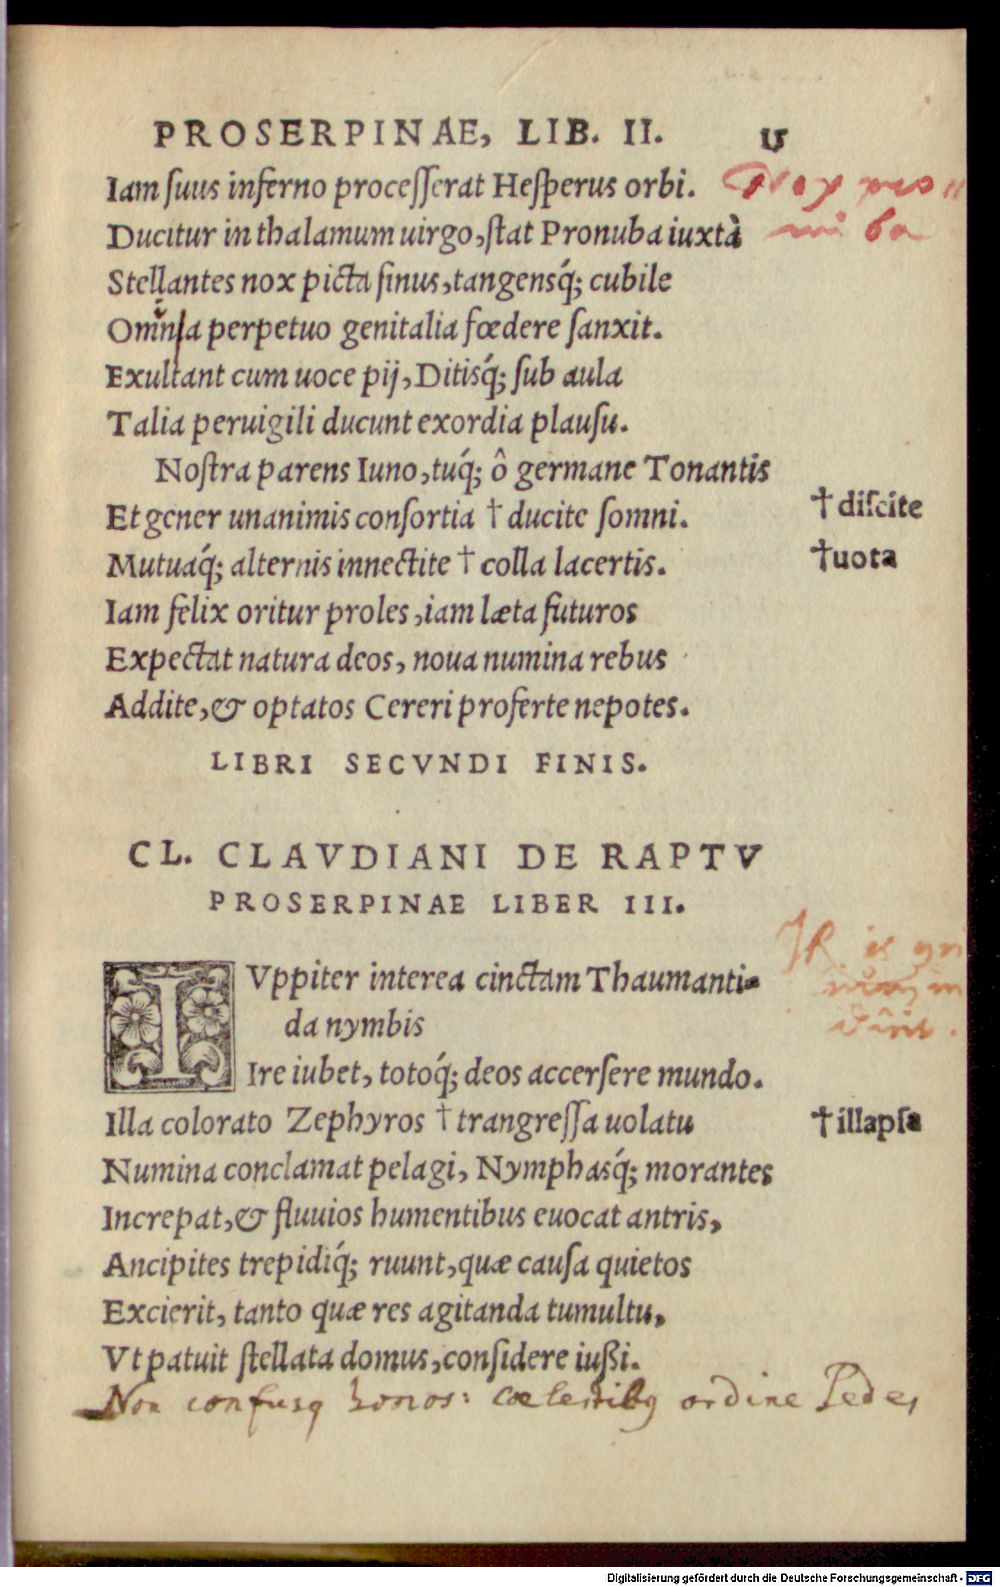 PROSERPINAE, LIB. II.
Iam suus inferno processerat Hesperus orbi.
Ducitur in thalamum uirgo, stat Pronuba iuxtà
Stellantes nox picta sinus, tangensq́; cubile
Omnia perpetuo genitalia fœdere sanxit.
Exultant cum uoce pij, Ditisq́; sub aula
Talia peruigili ducunt exordia plausu.
Nostra parens Iuno, tuq́; ô germane Tonantis
Et gener unanimis consortia † ducite somni. † discite
Mutuaq́; alternis innectite † colla lacertis. † uota
Iam felix oritur proles, iam læta futuros
Expectat natura deos, noua numina rebus
Addite, & optatos Cereri proferte nepotes.
LIBRI SECVNDI FINIS.
CL. CLAVDIANI DE RAPTV
PROSERPINAE LIBER III.
IVppiter interea cinctam Thaumanti-
da nymbis
Ire iubet, totoq́; deos accersere mundo.
Illa colorato Zephyros † trangressa uolatu † illapsa
Numina conclamat pelagi, Nymphasq́; morantes
Increpat, & fluuios humentibus euocat antris,
Ancipites trepidiq́; ruunt, quæ causa quietos
Excierit, tanto quæ res agitanda tumultu,
Vt patuit stellata domus, considere iussi.
Non confusq honos: coelestibq ordine sedes
Digitalisierung gefördert durch die Deutsche Forschungsgemeinschaft - DFG